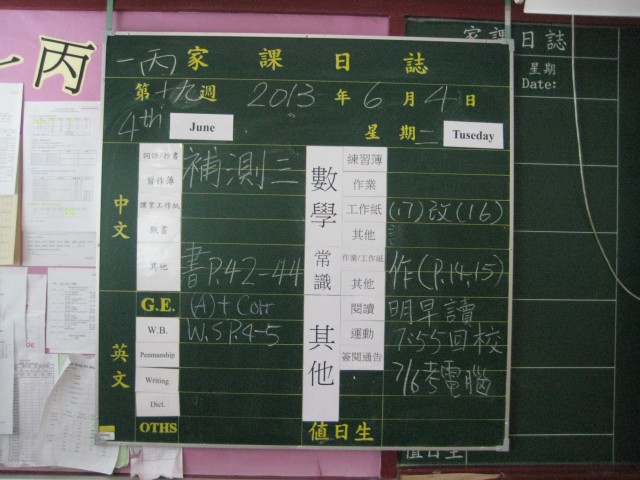 一丙
一丙 家課日誌
第十九週 2013年6月4日
4th June 星期二 Tuseday
中文
詞語/抄書
習作簿 補測三
課業工作紙
默書
其他 書P.42-44
英文
G.E. (A)+Corr
W.B. W.S P.4-5
Penmanship
Writing
Dict.
OTHS
數學
練習簿
作業
工作紙 (17)改(16)
其他
常識
作業/工作紙 作(P.14,15)
其他
其他
閱讀 明早讀
運動 7:55回校
簽閱通告 7/6考電腦
值日生
家課日誌
星期
Date:
值日生